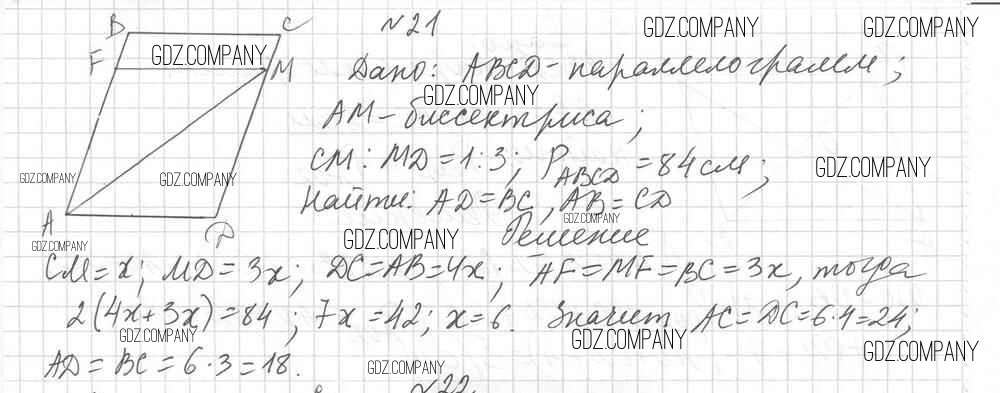 №21
B C
F M
A D
Дано: ABCD - параллелограмм;
AM - биссектриса;
CM : MD = 1:3; P ABCD = 84 см;
Найти: AD = BC, AB = CD
Решение
CM = x; MD = 3x; DC = AB = 4x; AF = MF = BC = 3x, тогда
2(4x + 3x) = 84; 7x = 42; x = 6. Значит AC = DC = 6·4 = 24;
AD = BC = 6·3 = 18.
№22.
GDZ.COMPANY
GDZ.COMPANY
GDZ.COMPANY
GDZ.COMPANY
GDZ.COMPANY
GDZ.COMPANY
GDZ.COMPANY
GDZ.COMPANY
GDZ.COMPANY
GDZ.COMPANY
GDZ.COMPANY
GDZ.COMPANY
GDZ.COMPANY
GDZ.COMPANY